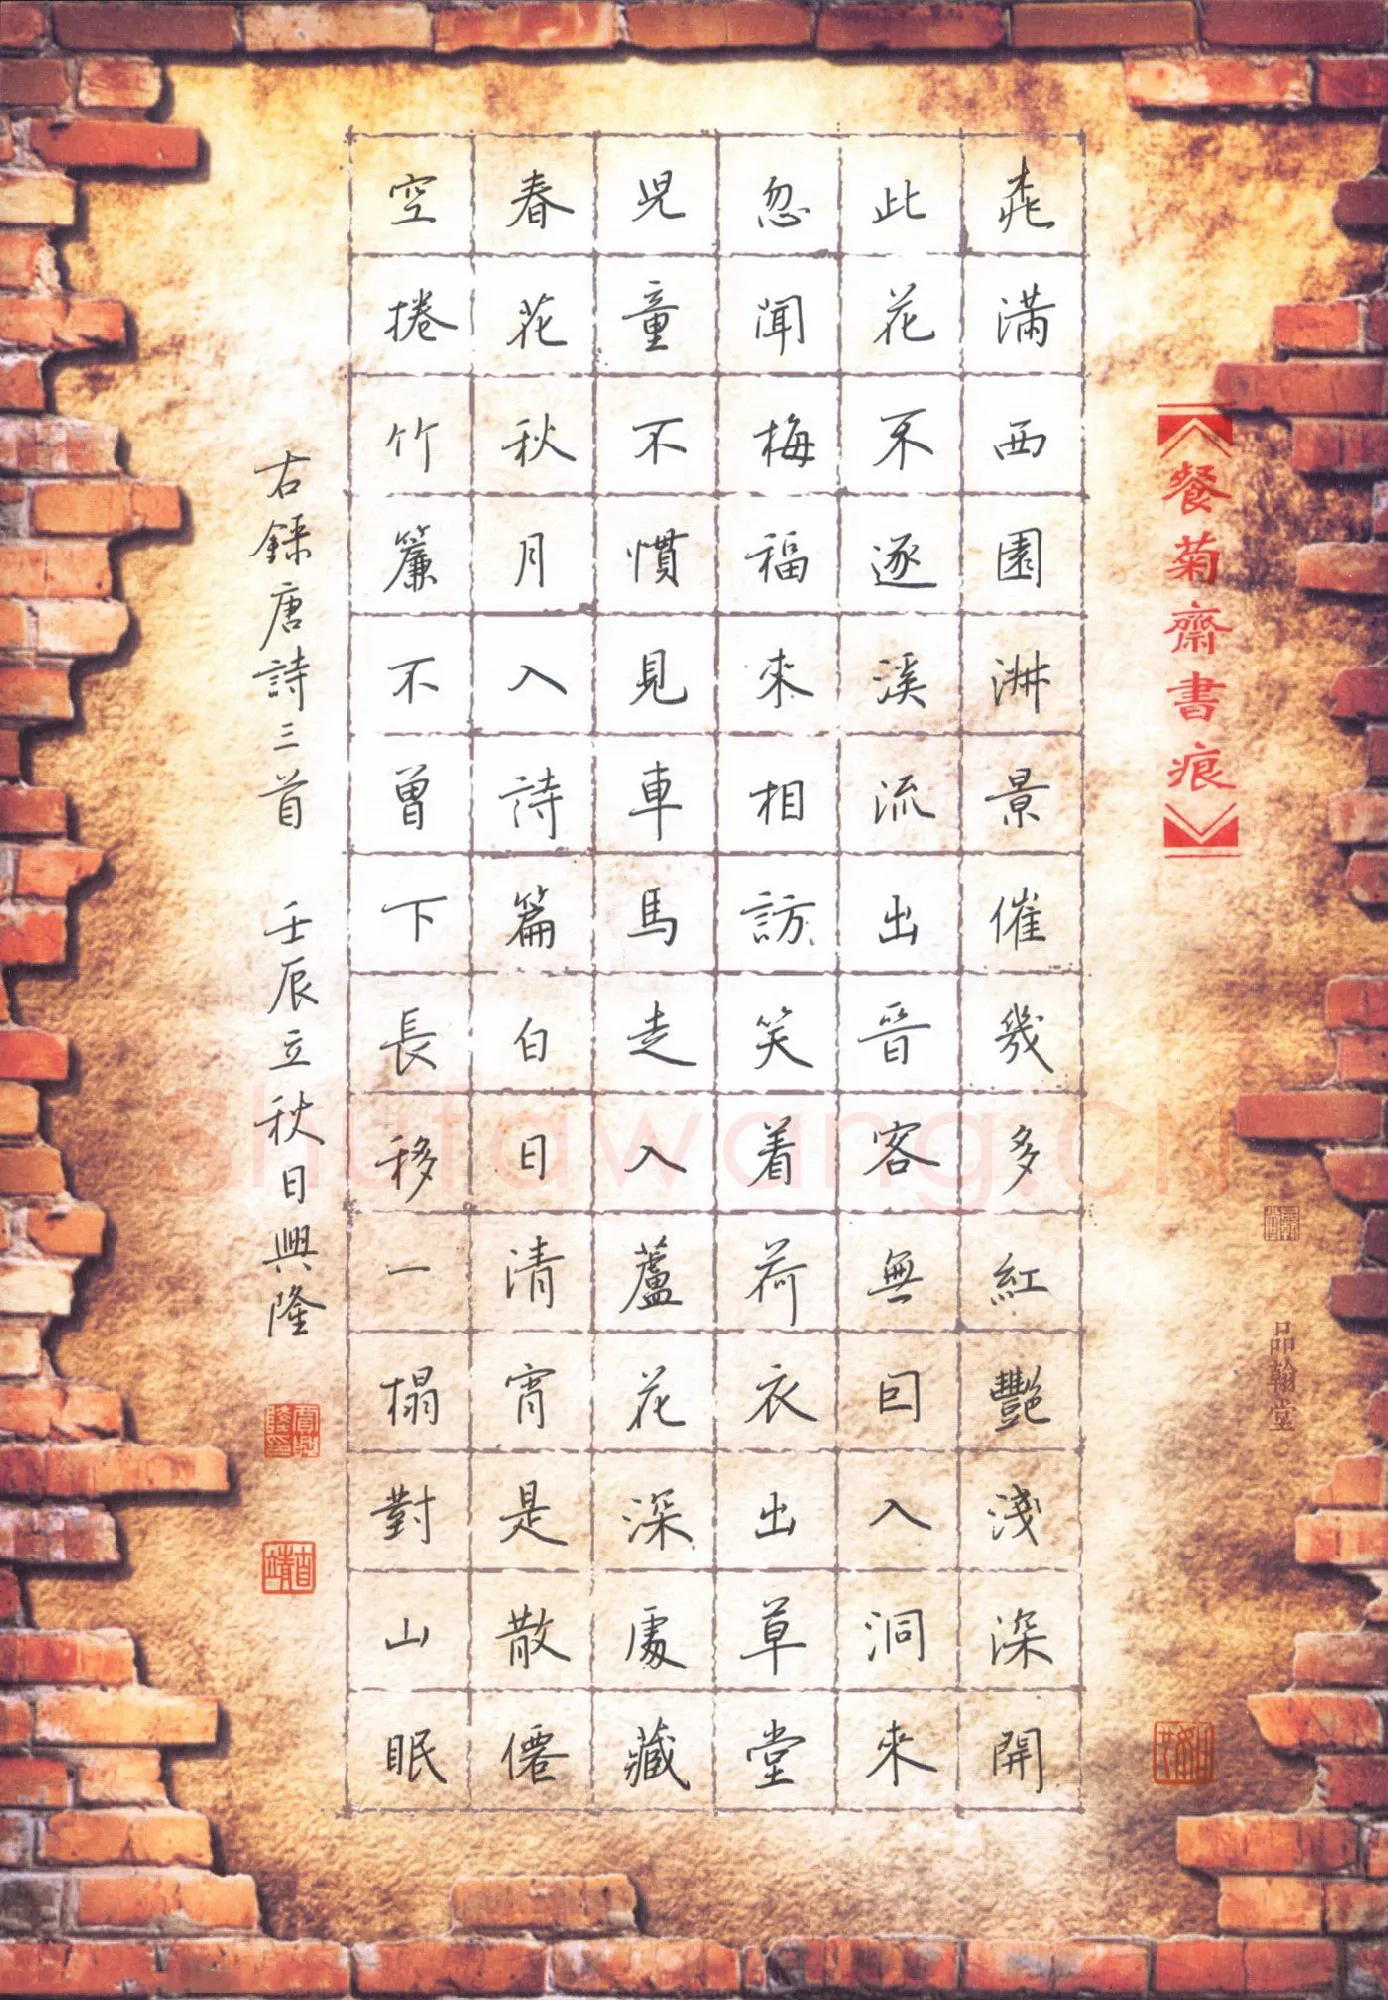 餐菊齋書痕
桃滿西園淑景催幾多紅艷淺深開
此花不逐溪流出晉客無因入洞來
忽聞梅福來相訪笑着荷衣出草堂
児童不慣見車馬走入蘆花深處藏
春花秋月入詩篇白日清宵是散僊
空捲竹簾不曾下長移一榻對山眠
右録唐詩三首 壬辰立秋日興隆
品翰堂
shufawang.cn